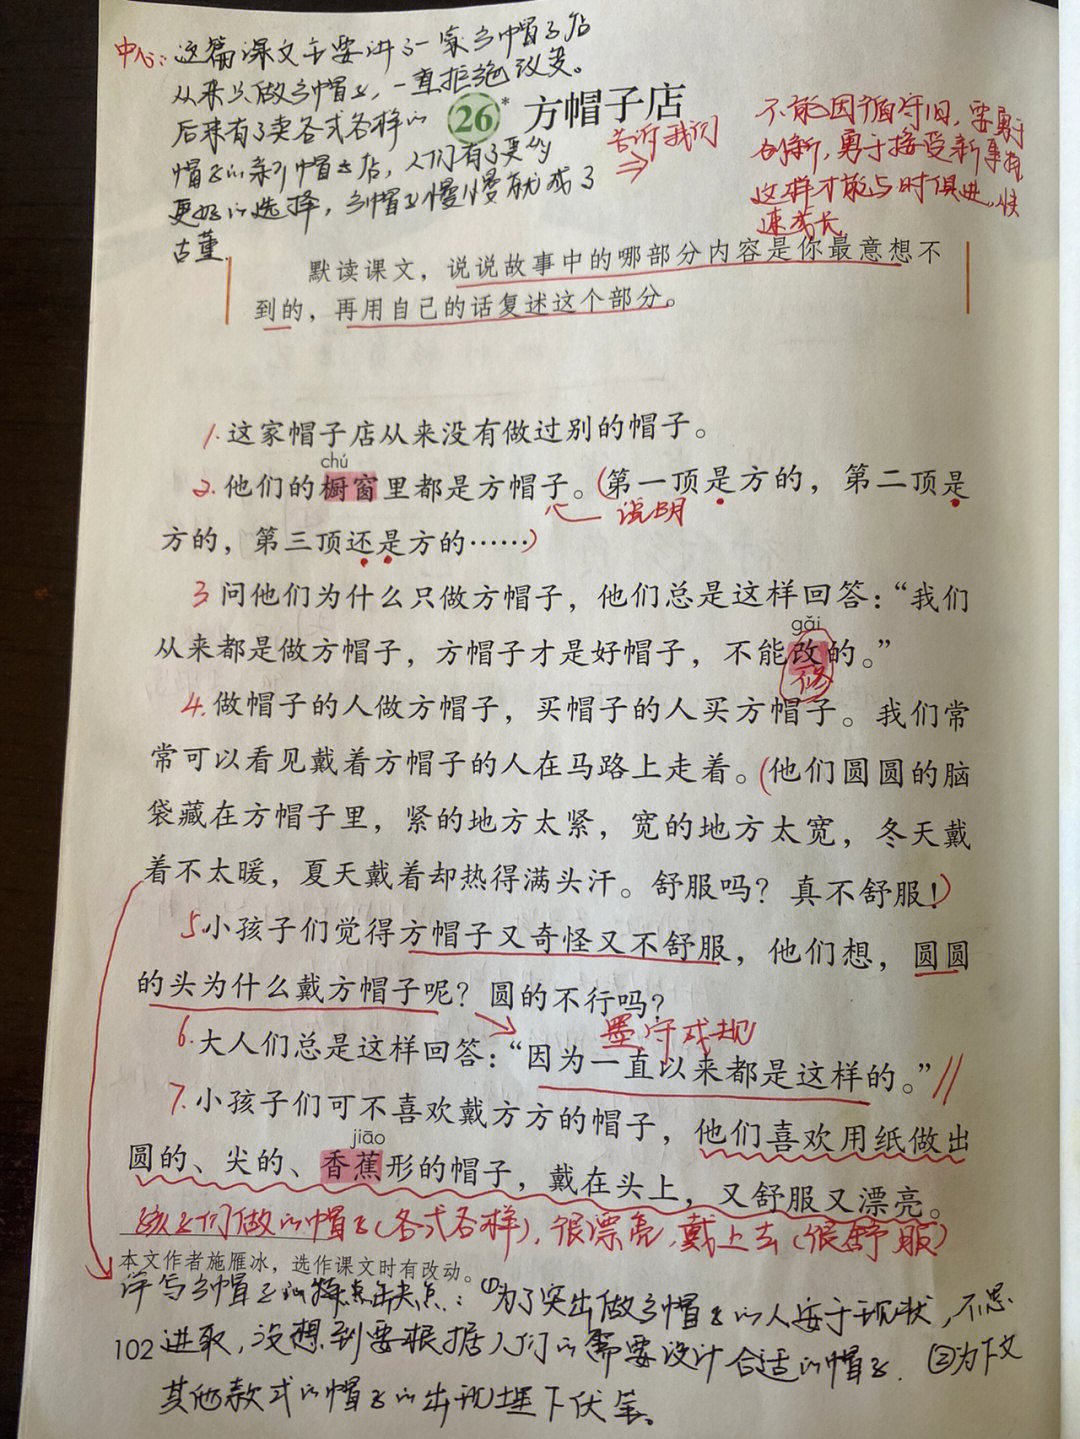 中心：这篇课文主要讲了一家方帽子店
从来只做方帽子，一直拒绝改变。
后来有了卖各式各样的
帽子的新帽子店，人们有了更多
更好的选择，方帽子慢慢就成了
古董.
26* 方帽子店
告诉我们
不能因循守旧，要勇于
创新，勇于接受新事物，
这样才能与时俱进，快
速成长
默读课文，说说故事中的哪部分内容是你最意想不
到的，再用自己的话复述这个部分。
1.这家帽子店从来没有做过别的帽子。
chú
2.他们的橱窗里都是方帽子。(第一顶是方的，第二顶是
说明
方的，第三顶还是方的……)
3 问他们为什么只做方帽子，他们总是这样回答：“我们
gǎi
从来都是做方帽子，方帽子才是好帽子，不能改的。”
修
4.做帽子的人做方帽子，买帽子的人买方帽子。我们常
常可以看见戴着方帽子的人在马路上走着。(他们圆圆的脑
袋藏在方帽子里，紧的地方太紧，宽的地方太宽，冬天戴
着不太暖，夏天戴着却热得满头汗。舒服吗？真不舒服！)
5.小孩子们觉得方帽子又奇怪又不舒服，他们想，圆圆
的头为什么戴方帽子呢？圆的不行吗？
墨守成规
6.大人们总是这样回答：“因为一直以来都是这样的。”//
7.小孩子们可不喜欢戴方方的帽子，他们喜欢用纸做出
jiāo
圆的、尖的、香蕉形的帽子，戴在头上，又舒服又漂亮。
孩子们做的帽子(各式各样)，很漂亮，戴上去(很舒服)
本文作者施雁冰，选作课文时有改动。
详写方帽子的特点缺点：①为了突出做方帽子的人安于现状，不思
102 进取，没想到要根据人们的需要设计合适的帽子. ②为下文
其他款式的帽子的出现埋下伏笔。